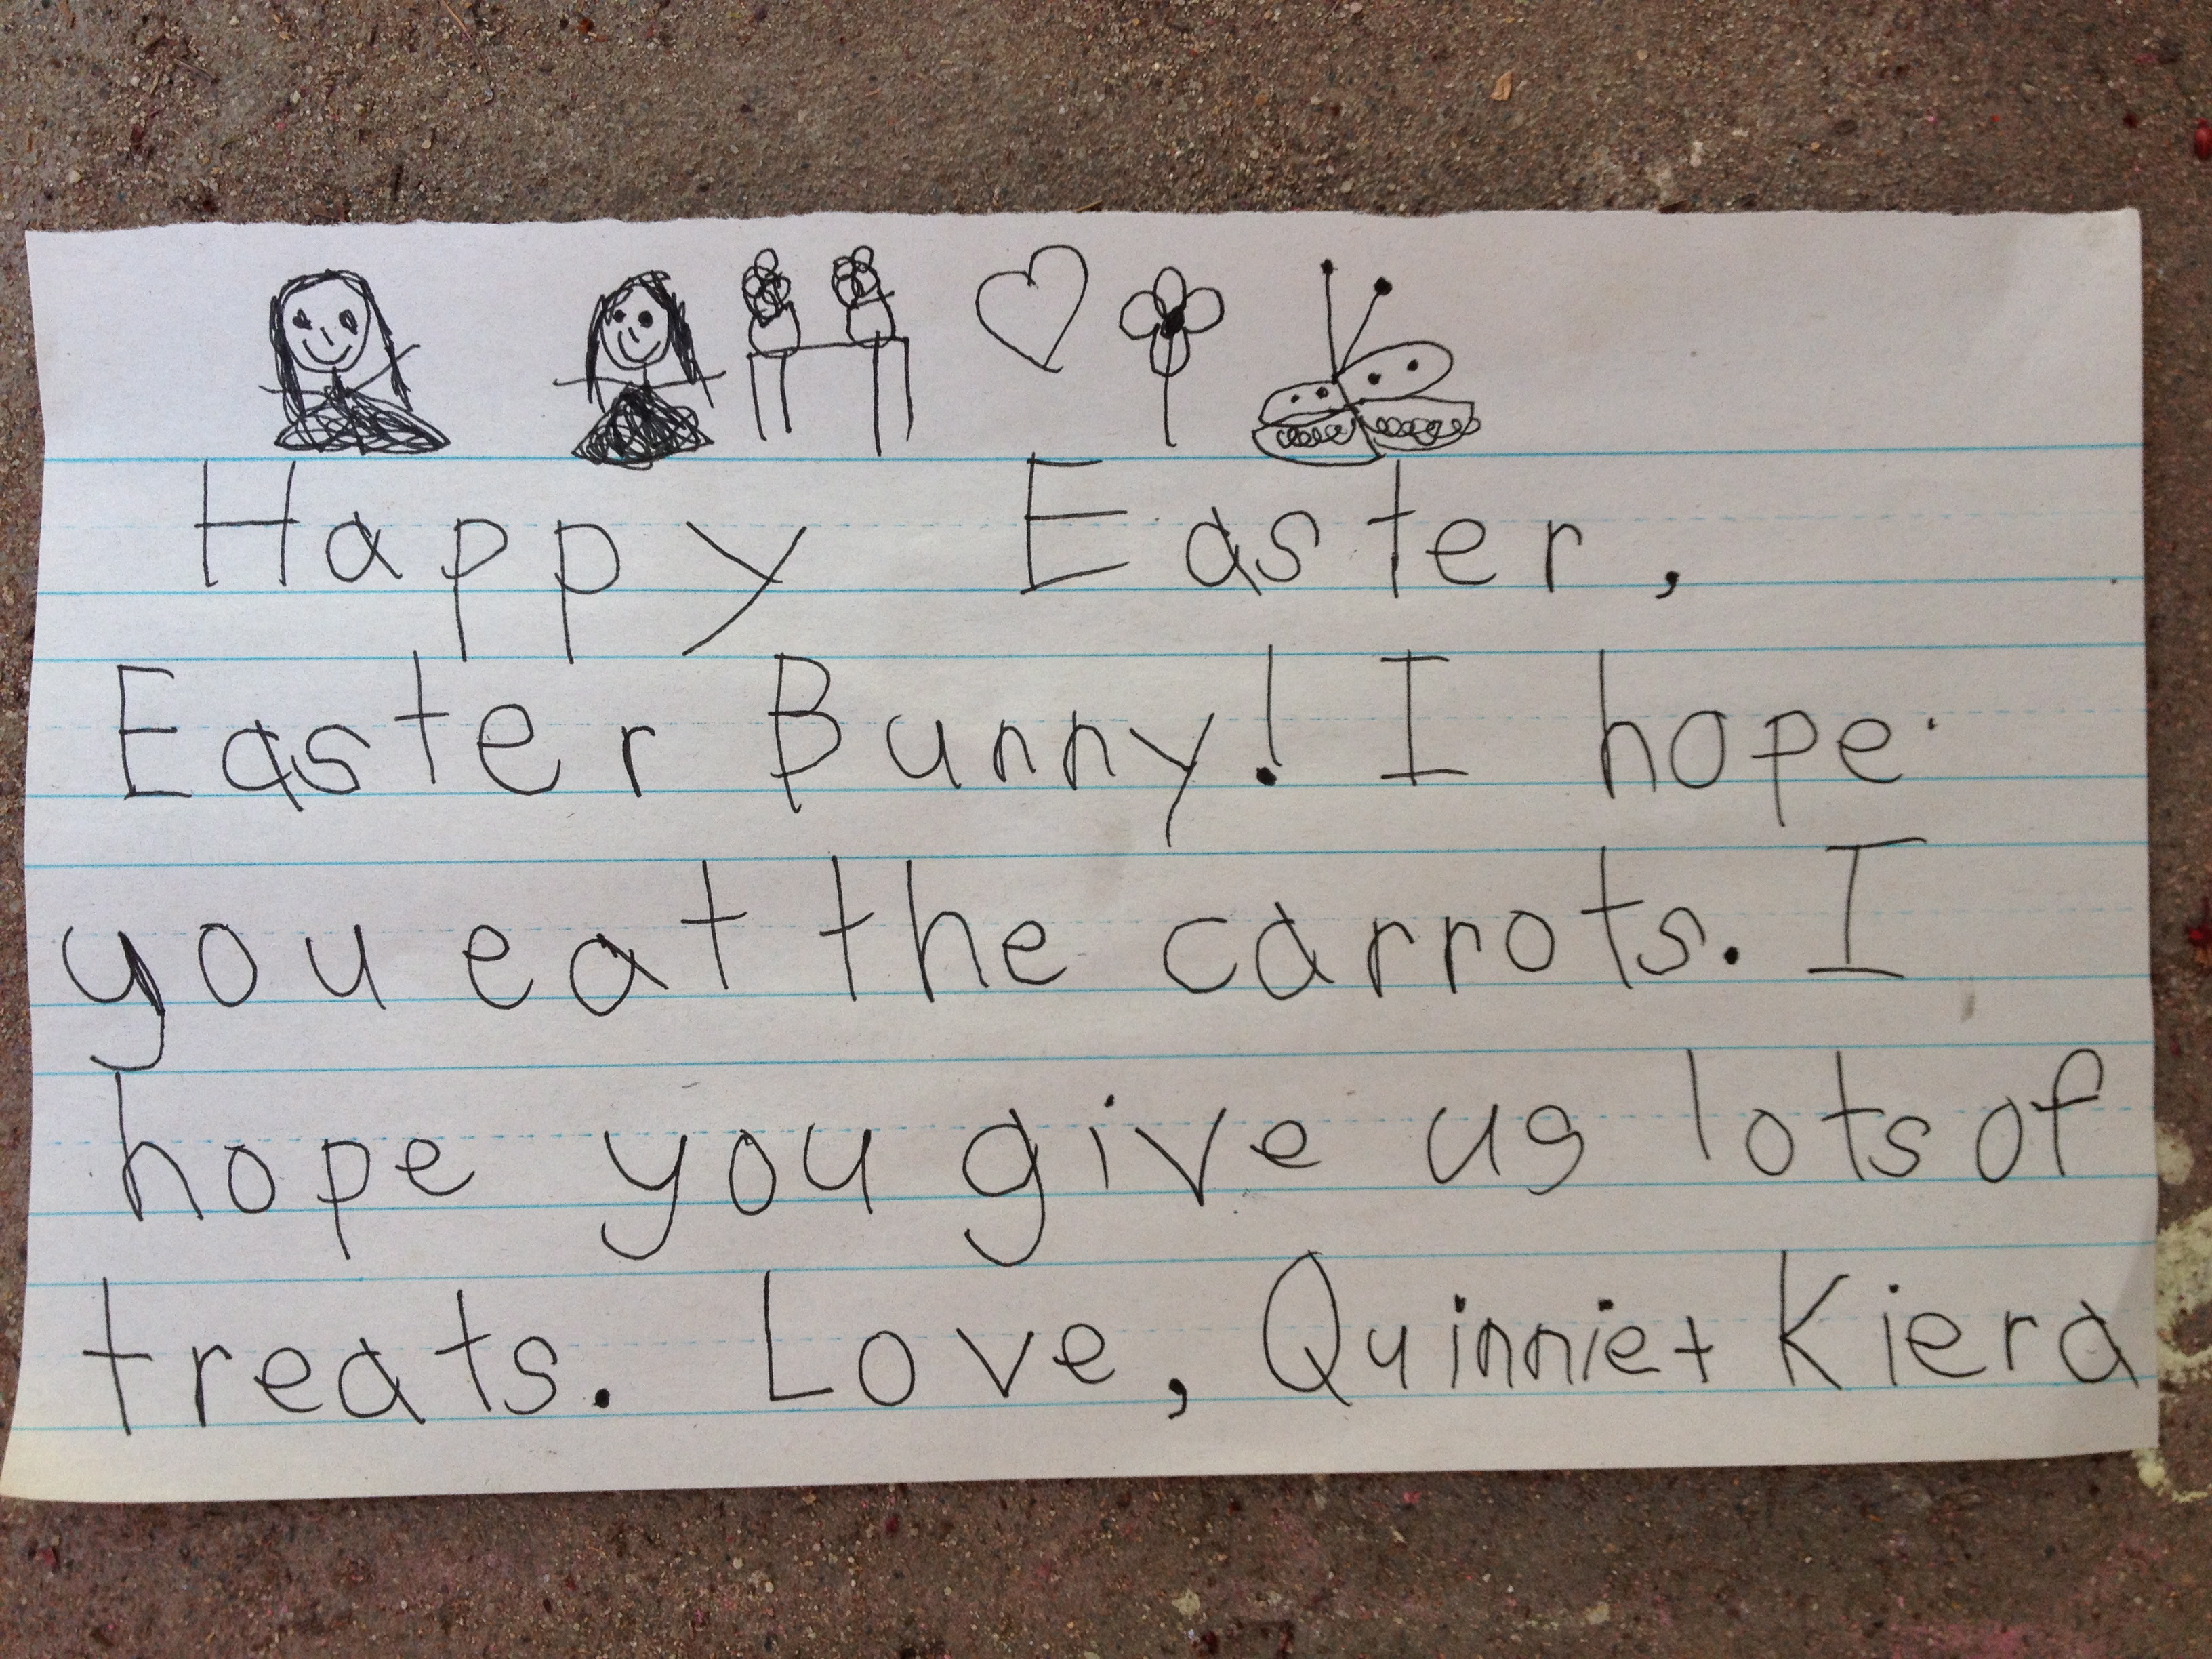 Happy Easter,
Easter Bunny! I hope
you eat the carrots. I
hope you give us lots of
treats. Love, Quinnie + Kiera